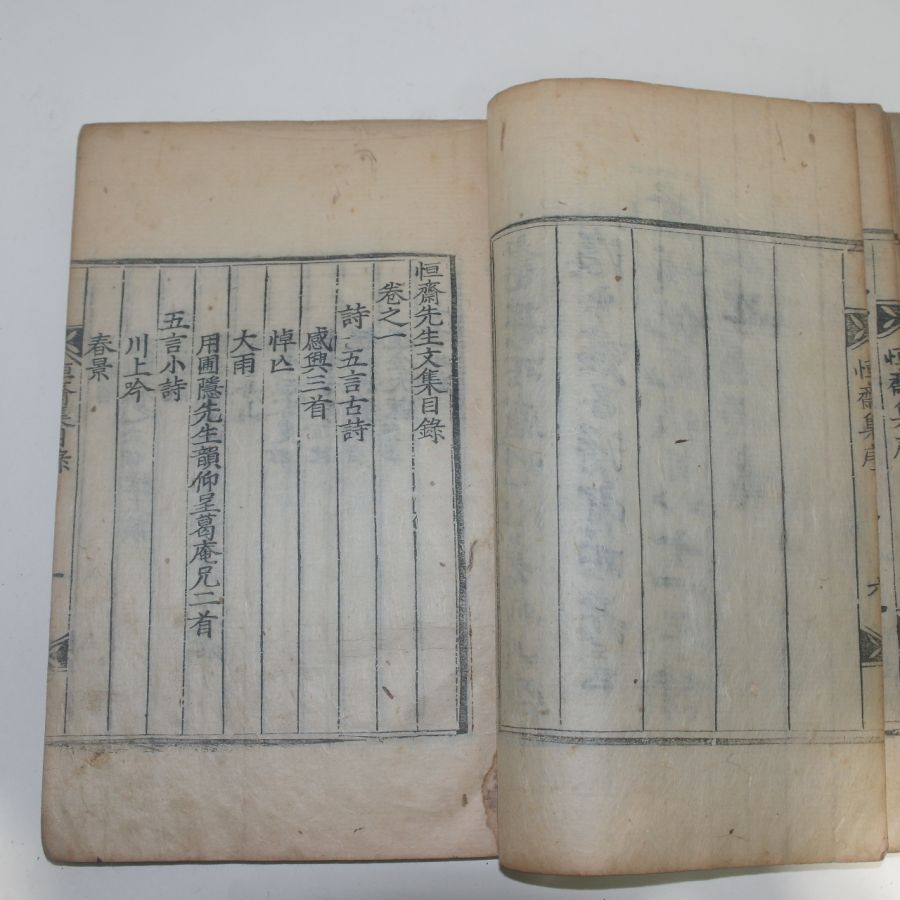 恒齋集序
六
恒齋集序
恒齋先生文集目錄
卷之一
詩 五言古詩
感興三首
悼亾
大雨
用圃隱先生韻仰呈葛庵兄二首
五言小詩
川上吟
春景
恒齋集目錄
一